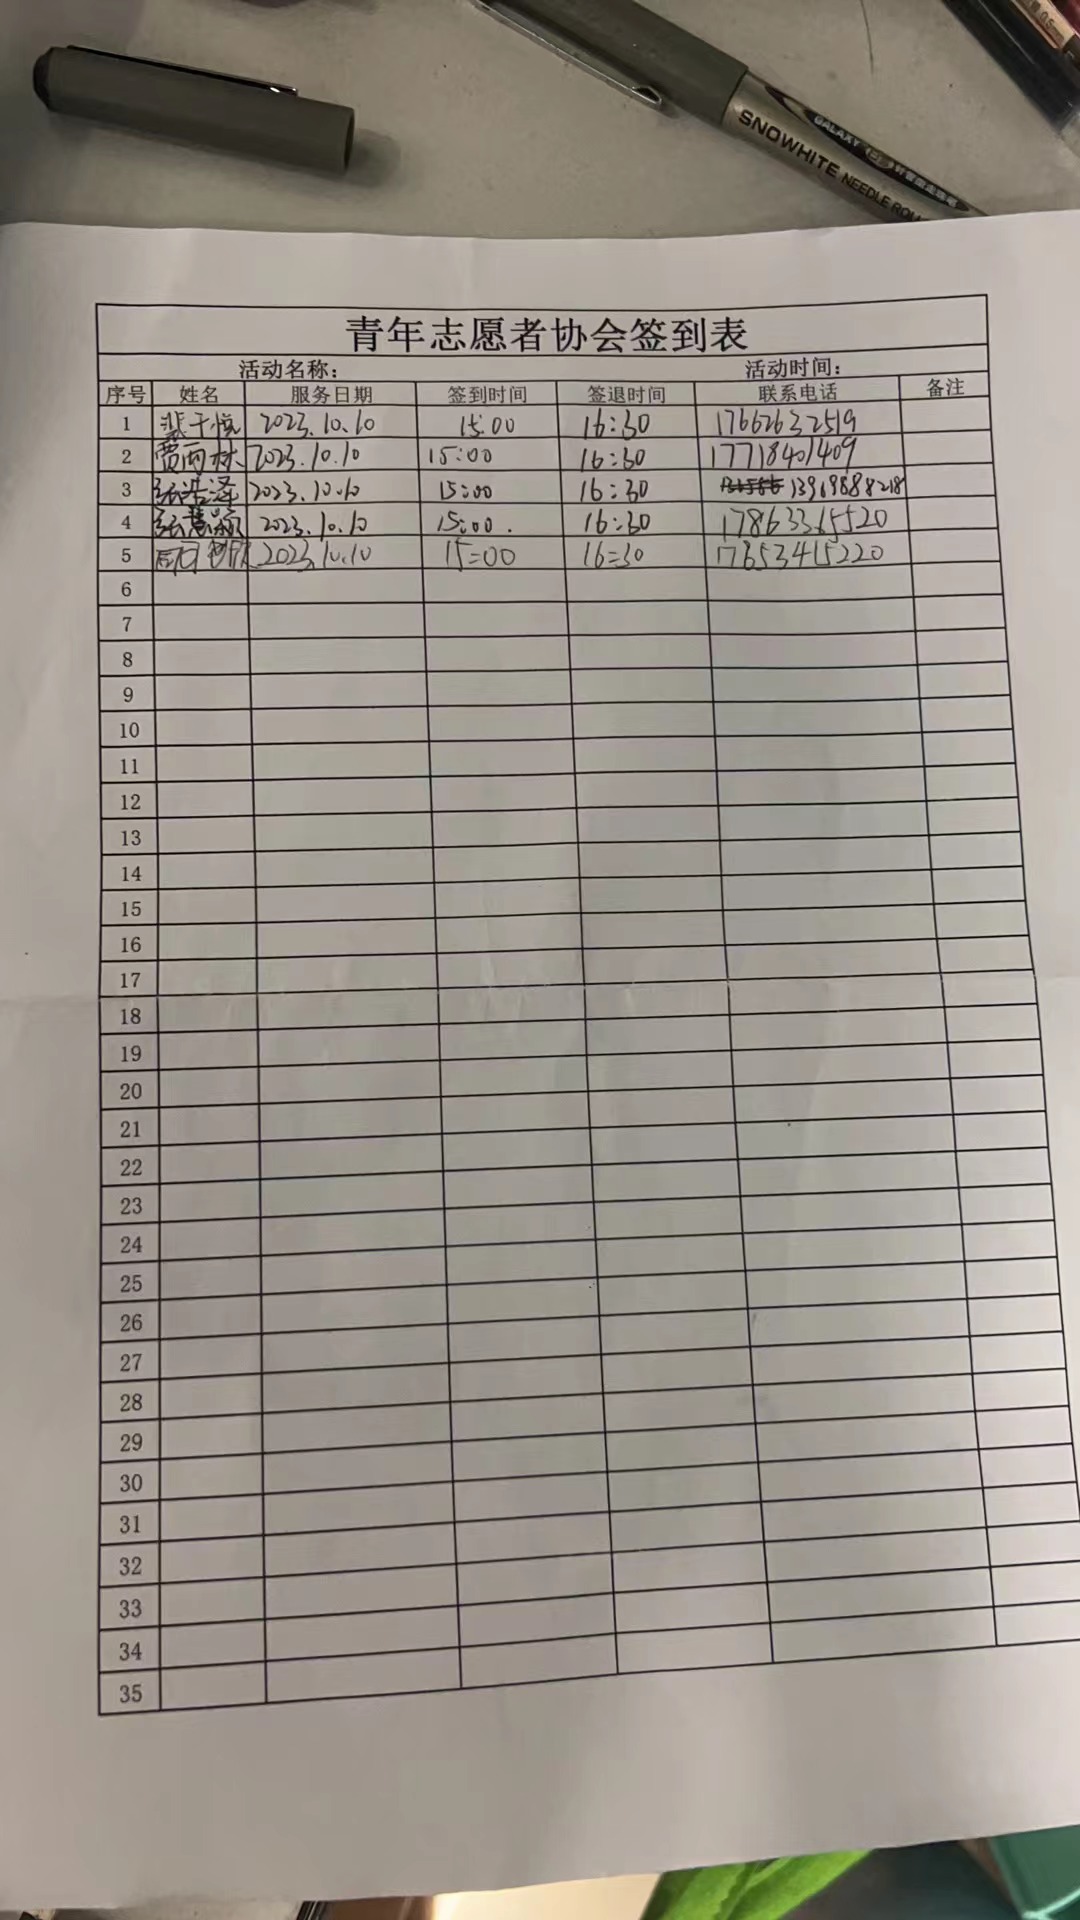 SNOWHITE NEEDLE ROLL
GALAXY
青年志愿者协会签到表
活动名称： 活动时间：
序号 姓名 服务日期 签到时间 签退时间 联系电话 备注
1 2023.10.10 15:00 16:30 17662632519
2 贾雨林 2023.10.10 15:00 16:30 17718401409
3 张浩泽 2023.10.10 15:00 16:30 13969888218
4 张慧颖 2023.10.10 15:00. 16:30 17863365520
5 2023.10.10 15:00 16:30 17653415220
6
7
8
9
10
11
12
13
14
15
16
17
18
19
20
21
22
23
24
25
26
27
28
29
30
31
32
33
34
35